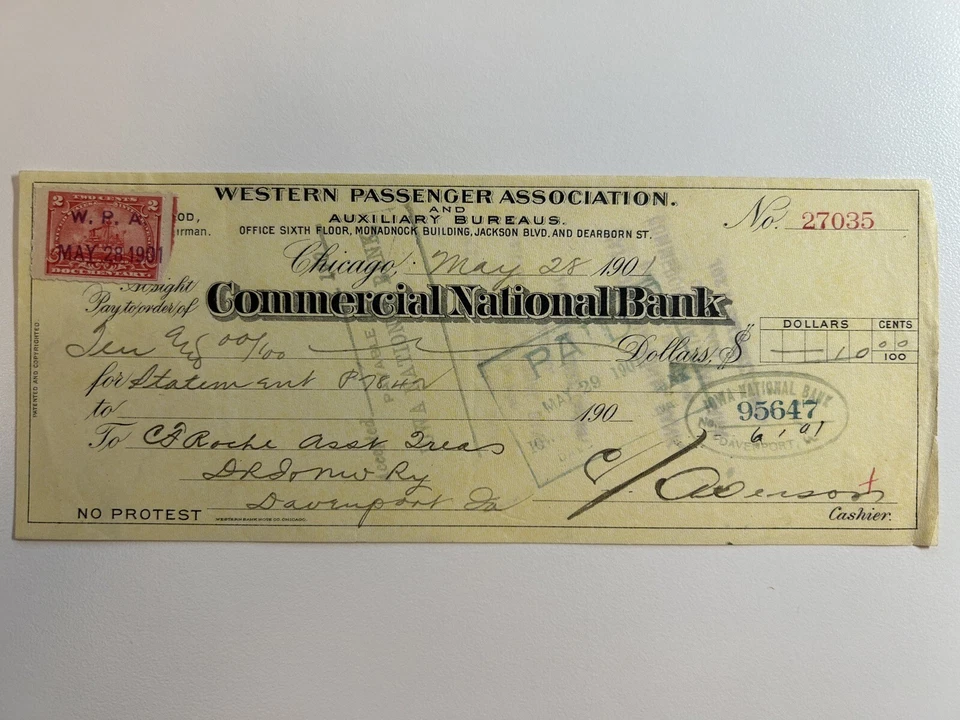 WESTERN PASSENGER ASSOCIATION.
AND
AUXILIARY BUREAUS.
OFFICE SIXTH FLOOR, MONADNOCK BUILDING, JACKSON BLVD. AND DEARBORN ST.
No. 27035
2 TWO CENTS 2
W. P. A.
MAY 28 1901
DOCUMENTARY
OOD,
irman.
Chicago, May 28 1901
At sight
Pay to order of Commercial National Bank
Ten 00/100 Dollars, $
DOLLARS CENTS
10 00
100
for Statement P7842
to 190
PAID
MAY 29 1901
IOWA NATIONAL BANK
No. 95647
6 1 01
DAVENPORT,
To C F Roche Asst Treas
Ry
Davenport Ia
Cashier.
NO PROTEST
WESTERN BANK NOTE CO. CHICAGO.
PATENTED AND COPYRIGHTED.